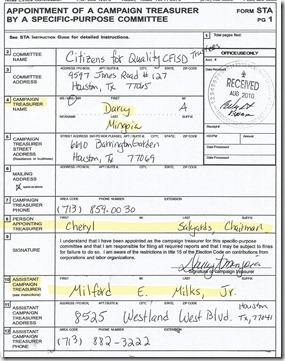 APPOINTMENT OF A CAMPAIGN TREASURER
BY A SPECIFIC-PURPOSE COMMITTEE
FORM STA
PG 1
See STA INSTRUCTION GUIDE for detailed instructions.
1 Total pages filed:
2 COMMITTEE NAME
Citizens for Quality CFISD Trustees
OFFICE USE ONLY
3 COMMITTEE ADDRESS
9597 Jones Road # 127
Houston, Tx 77065
RECEIVED
AUG 2010
4 CAMPAIGN TREASURER NAME
MS / MRS / MR FIRST MI
Darcy A
NICKNAME LAST SUFFIX
Mingoia
5 CAMPAIGN TREASURER STREET ADDRESS
(Residence or business)
6610 Barrington Garden
Houston, Tx 77069
6 MAILING ADDRESS
7 CAMPAIGN TREASURER PHONE
AREA CODE PHONE NUMBER EXTENSION
(713) 859-0030
8 PERSON APPOINTING TREASURER
FIRST MI LAST SUFFIX
Cheryl Salyards, Chairman
9 SIGNATURE
I understand that I have been appointed as the campaign treasurer for this specific-purpose
committee and that I am responsible for filing all required reports and that I may be subject to fines
for failure to do so. I am aware of the restrictions in title 15 of the Election Code on contributions from
corporations and labor organizations.
Signature of Campaign Treasurer
10 ASSISTANT CAMPAIGN TREASURER
(see instructions)
Milford E. Milks, Jr.
11 ASSISTANT CAMPAIGN TREASURER ADDRESS
8525 Westland West Blvd. Houston Tx, 77041
12 ASSISTANT CAMPAIGN TREASURER PHONE
AREA CODE PHONE NUMBER EXTENSION
(713) 882-3222